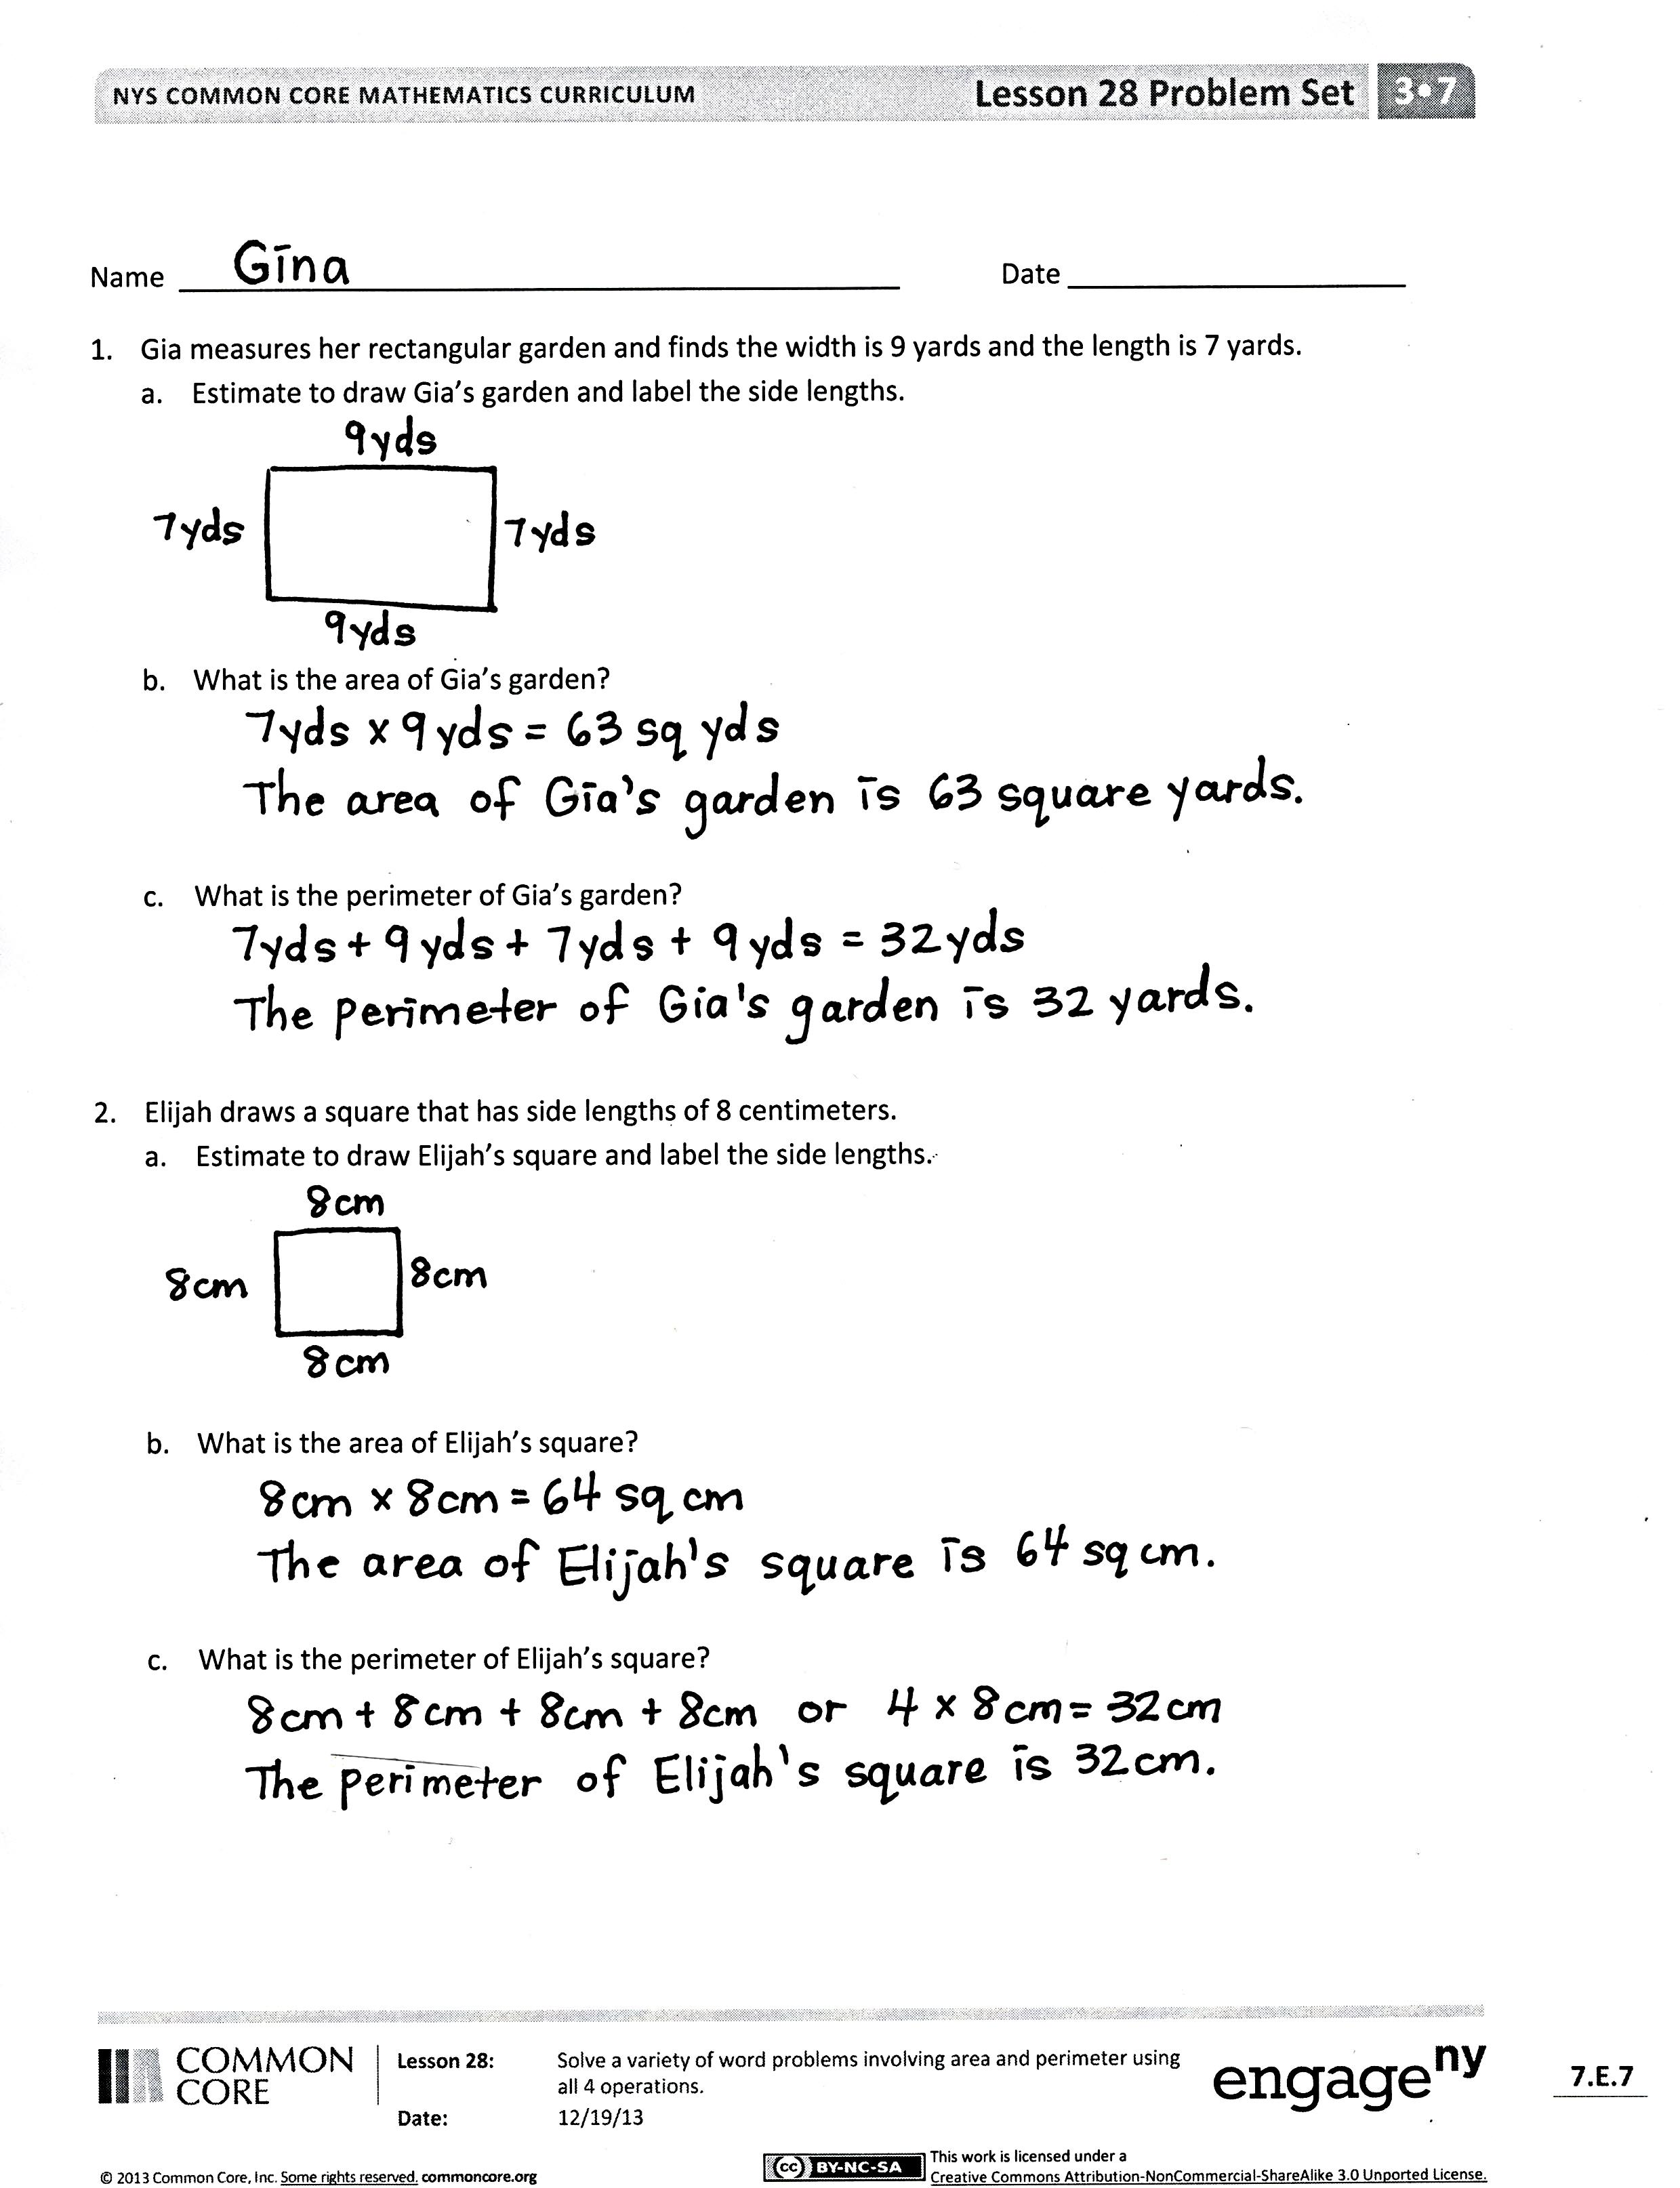 NYS COMMON CORE MATHEMATICS CURRICULUM Lesson 28 Problem Set 3•7
Name Gina Date
1. Gia measures her rectangular garden and finds the width is 9 yards and the length is 7 yards.
a. Estimate to draw Gia's garden and label the side lengths.
9yds
7yds 7yds
9yds
b. What is the area of Gia's garden?
7yds x 9yds = 63 sq yds
The area of Gia's garden is 63 square yards.
c. What is the perimeter of Gia's garden?
7yds + 9yds + 7yds + 9yds = 32yds
The perimeter of Gia's garden is 32 yards.
2. Elijah draws a square that has side lengths of 8 centimeters.
a. Estimate to draw Elijah's square and label the side lengths.
8cm
8cm 8cm
8cm
b. What is the area of Elijah's square?
8cm x 8cm = 64 sq cm
The area of Elijah's square is 64 sq cm.
c. What is the perimeter of Elijah's square?
8cm + 8cm + 8cm + 8cm or 4 x 8cm = 32cm
The perimeter of Elijah's square is 32cm.
COMMON CORE
Lesson 28: Solve a variety of word problems involving area and perimeter using
all 4 operations.
Date: 12/19/13
engageny
7.E.7
© 2013 Common Core, Inc. Some rights reserved. commoncore.org
cc BY-NC-SA
This work is licensed under a
Creative Commons Attribution-NonCommercial-ShareAlike 3.0 Unported License.